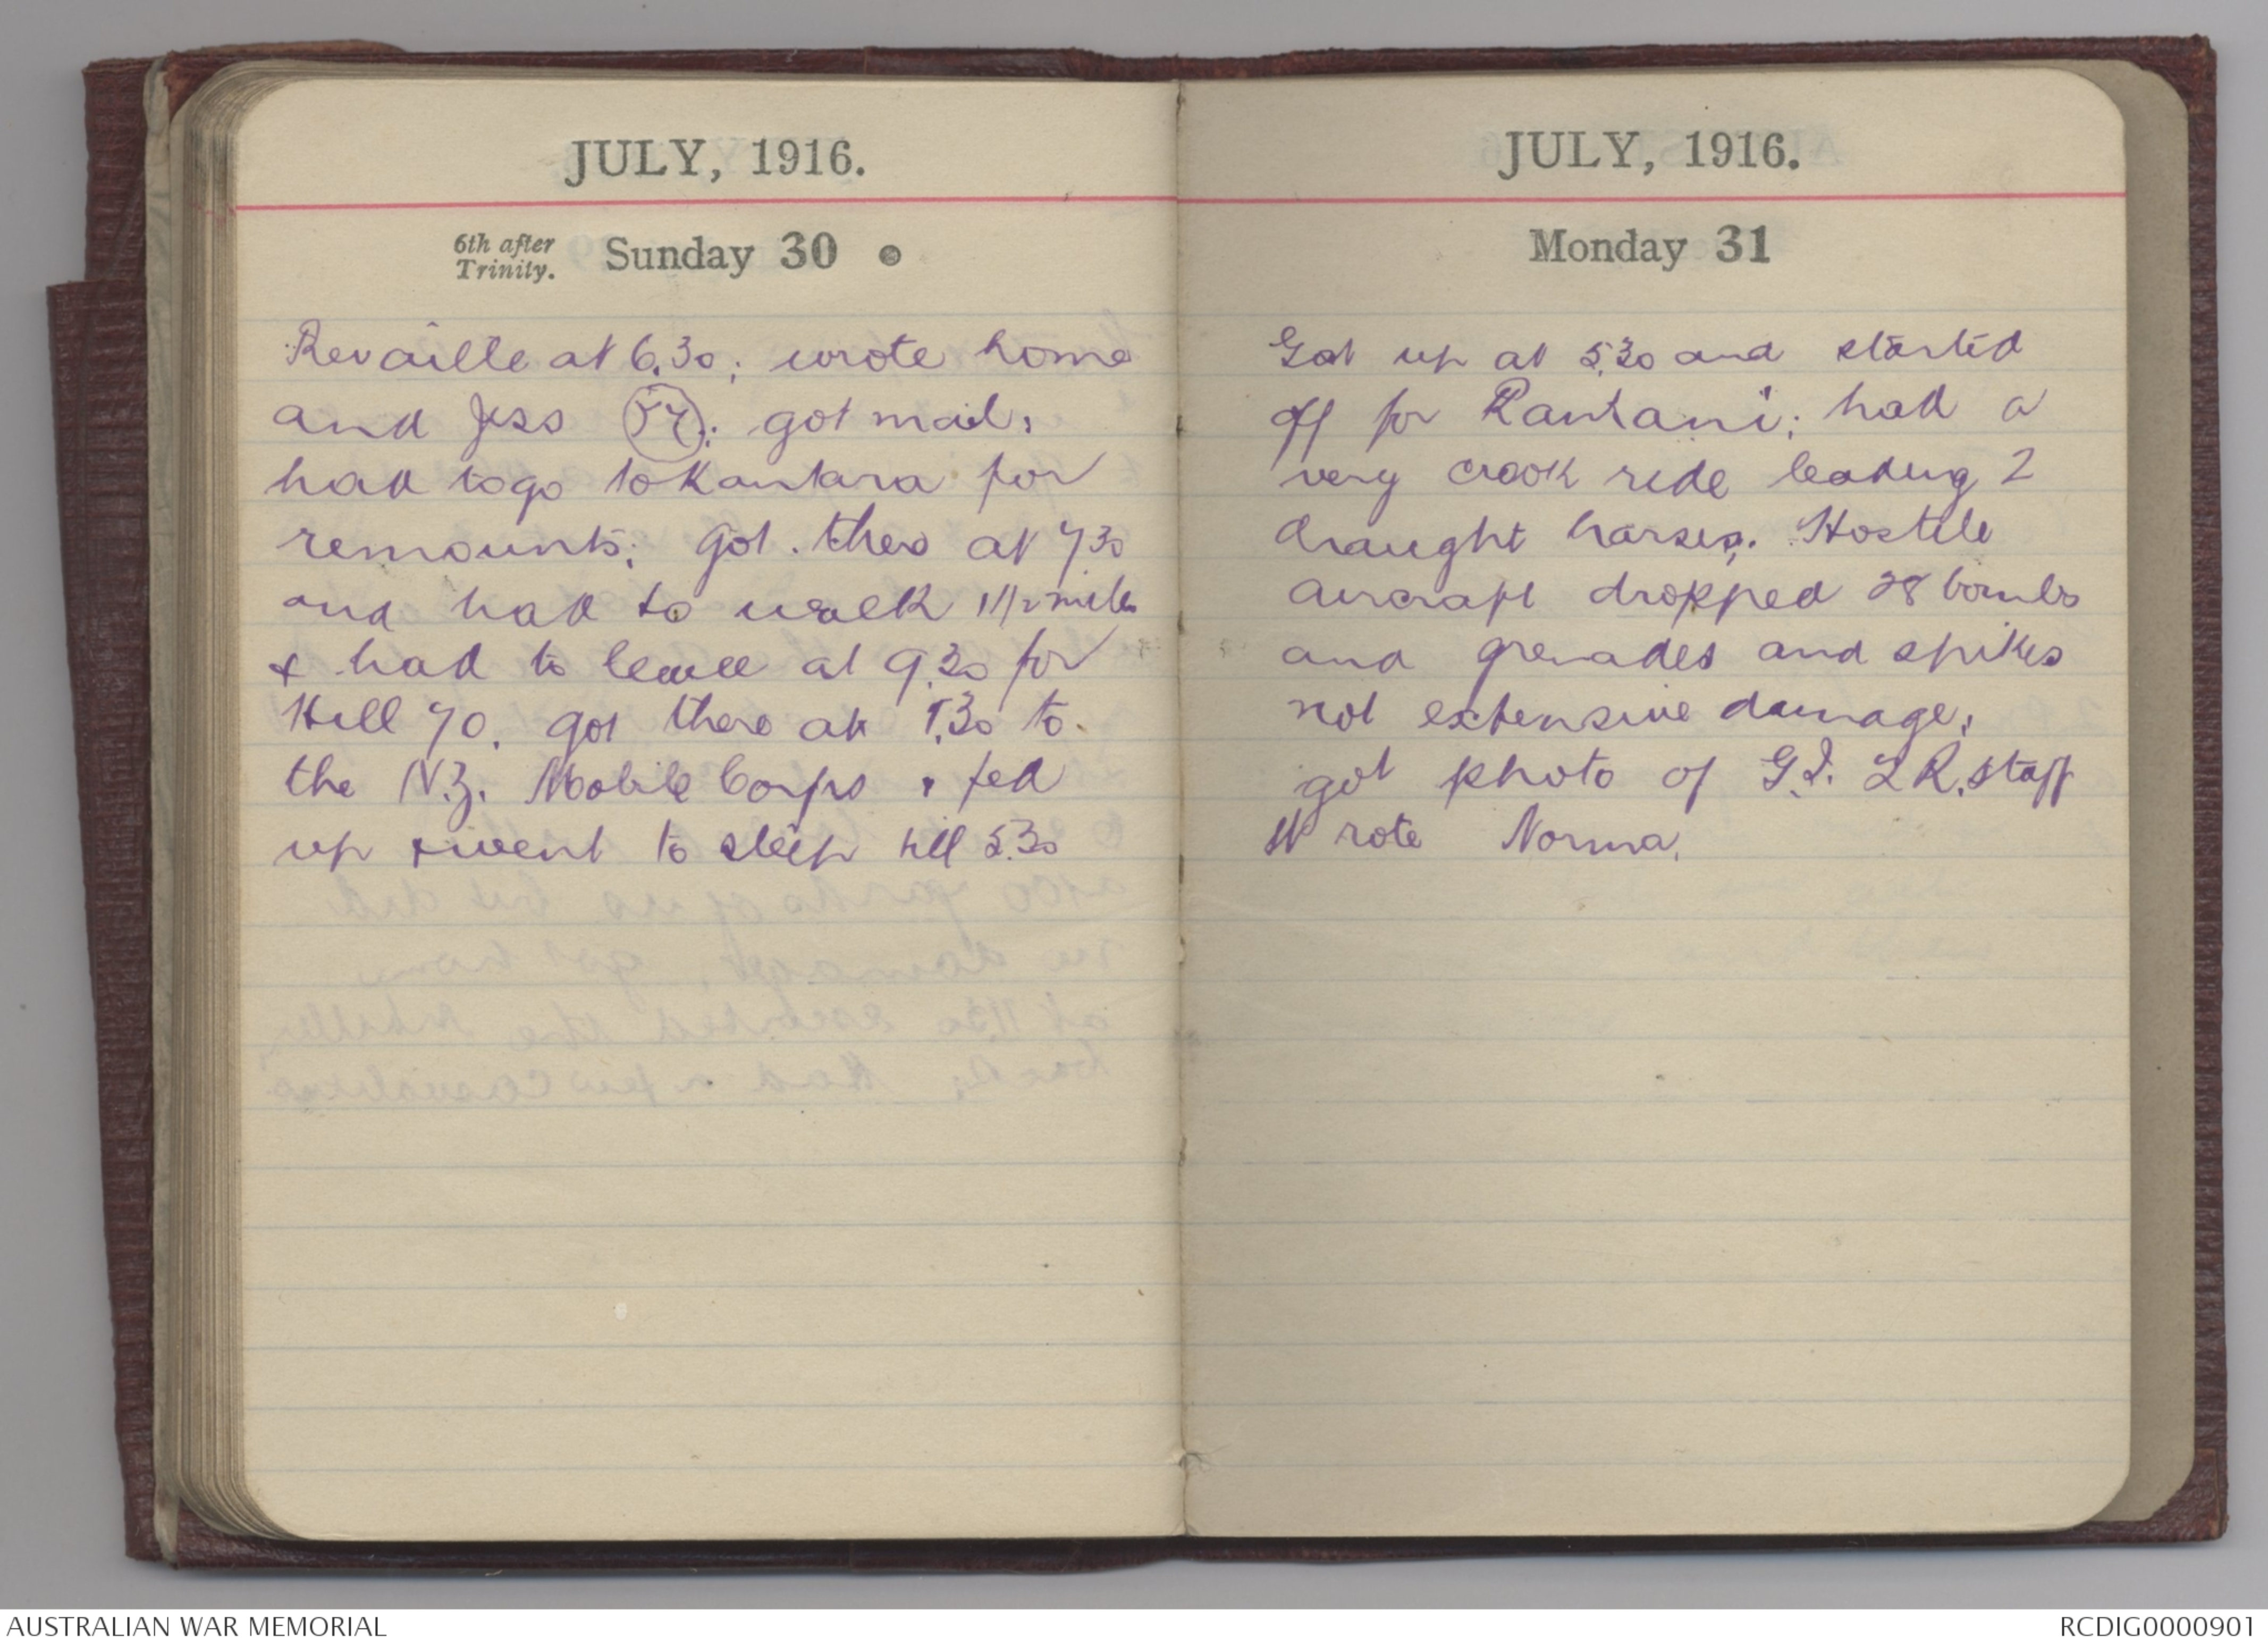 JULY, 1916.
6th after
Trinity. Sunday 30
Revaille at 6.30; wrote home
and Jess (57); got mail;
had to go to Kantara for
remounts; got there at 7 30
and had to walk 1 1/2 miles
& had to leave at 9.30 for
Hill 70. got there at 1.30 to
the N.Z. Mobile Corps, fed
up & went to sleep till 5.30
JULY, 1916.
Monday 31
Got up at 5.30 and started
off for Rantani; had a
very crook ride leading 2
draught horses. Hostile
aircraft dropped 28 bombs
and grenades and spikes
not extensive damage,
got photo of G.I. L R. staff
Wrote Norma.
AUSTRALIAN WAR MEMORIAL
RCDIG0000901